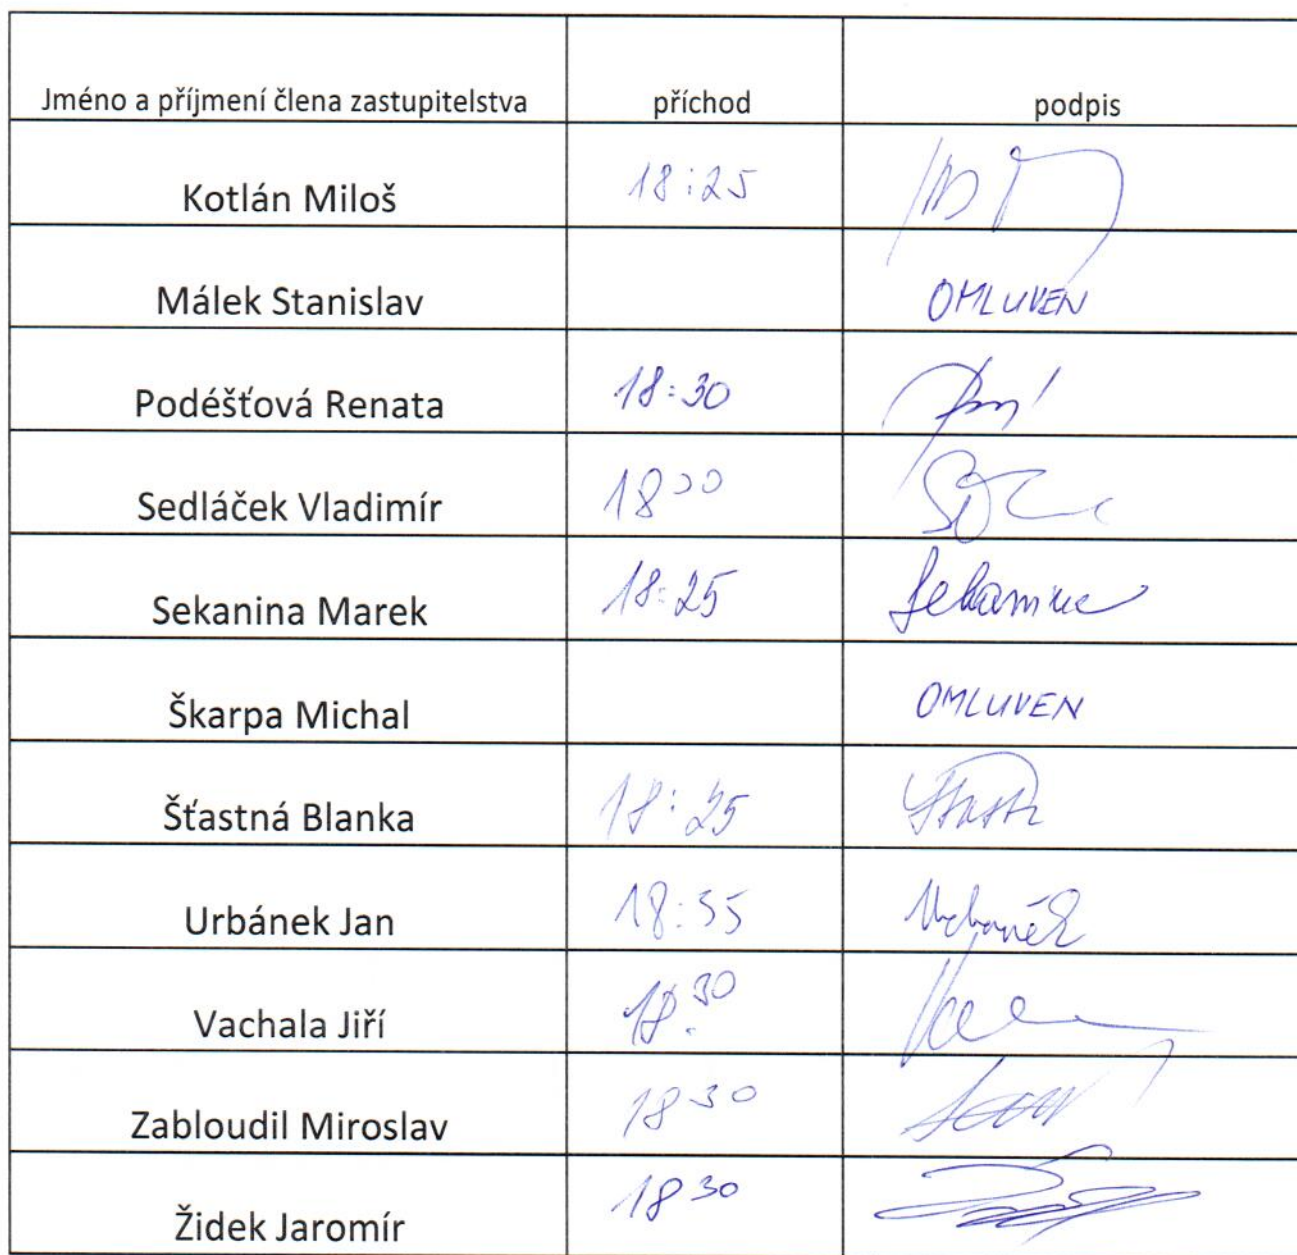 Jméno a příjmení člena zastupitelstva příchod podpis
Kotlán Miloš 18:25
Málek Stanislav OMLUVEN
Podéšťová Renata 18:30
Sedláček Vladimír
Sekanina Marek 18:25 Sekanina
Škarpa Michal OMLUVEN
Šťastná Blanka 18:25
Urbánek Jan 18:35 Urbánek
Vachala Jiří 18.30
Zabloudil Miroslav 18 30
Židek Jaromír 18 30